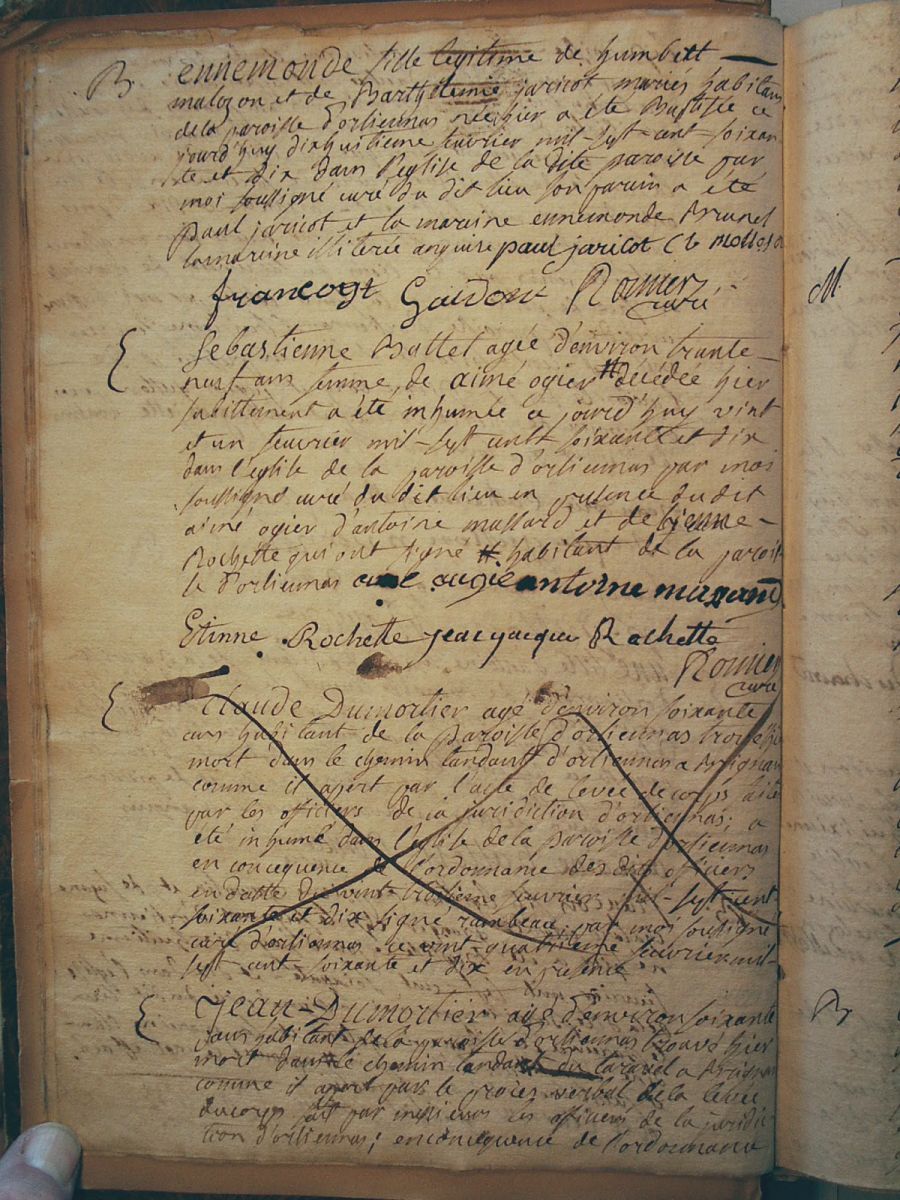 B ennemonde fille legitime de humbert
malozon et de Barthelemie jaricot mariés habitans
de la paroisse d'orliennas née hier a été Baptisée ce
jourd'huy dixhuitieme fevrier mil sept cent soixan
te et dix dans l'église de la dite paroisse par
moi soussigné curé du dit lieu son parain a été
paul jaricot et la maraine ennemonde Brunel
la maraine illiterée enquise paul jaricot
francogt Gaidon Romier
curé
Sebastienne Buttet agée d'environ trante
neuf ans femme de aimé ogier # décédée hier
subittement a été inhumée ce jourd'huy vint
et un feuvrier mil sept cent soixante et dix
dans l'église de la paroisse d'orliennas par moi
soussigné curé du dit lieu en presence du dit
aimé ogier d'antoine massard et de etienne
Rochette qui ont signé # habitant de la paroiss
le d'orliennas antoine
Etinne Rochette jeacquacque Rochette
Romier
curé
Claude Dumortier agé d'environ soixante
ans habitant de la paroisse d'orliennas trouvé hier
mort dans le chemin tandant d'orliennas a Brignais
comme il apert par l'acte de levée de corps faite
par les officiers de la juridiction d'orliennas; a
été inhumé dans l'église de la paroisse d'orliennas
en concequence de l'ordonnance des dits officiers
en datte du vint troisieme feuvrier mil sept cent
soixante et dix signé rambeau, par moi soussigné
curé d'orliennas ce vint quatrieme feuvrier mil
sept cent soixante et dix en presence
Jean Dumortier agé d'environ soixante
ans habitant de la paroisse d'orliennas trouvé hier
mort dans le chemin tandant a Brignais
comme il apert par le procès verbal de la levée
du corps fait par messieurs les officiers de la juridic
tion d'orliennas; en concequence de l'ordonnance
M
B